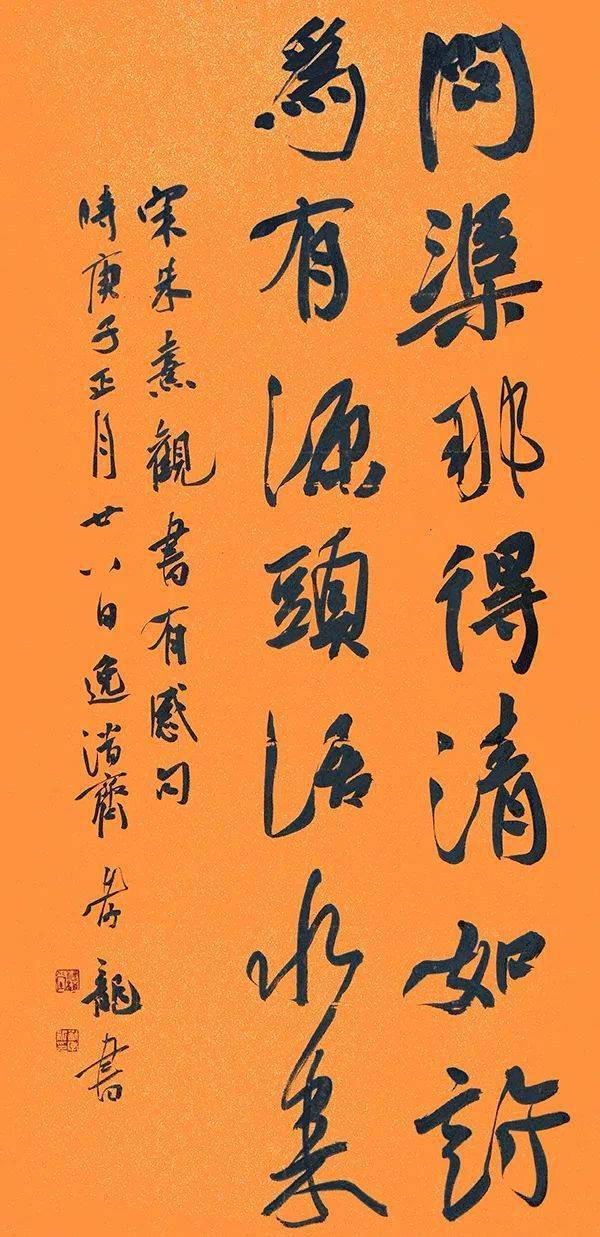 問渠那得清如許
爲有源頭活水來
宋朱熹觀書有感句
時庚子正月廿八日逸齋龍書